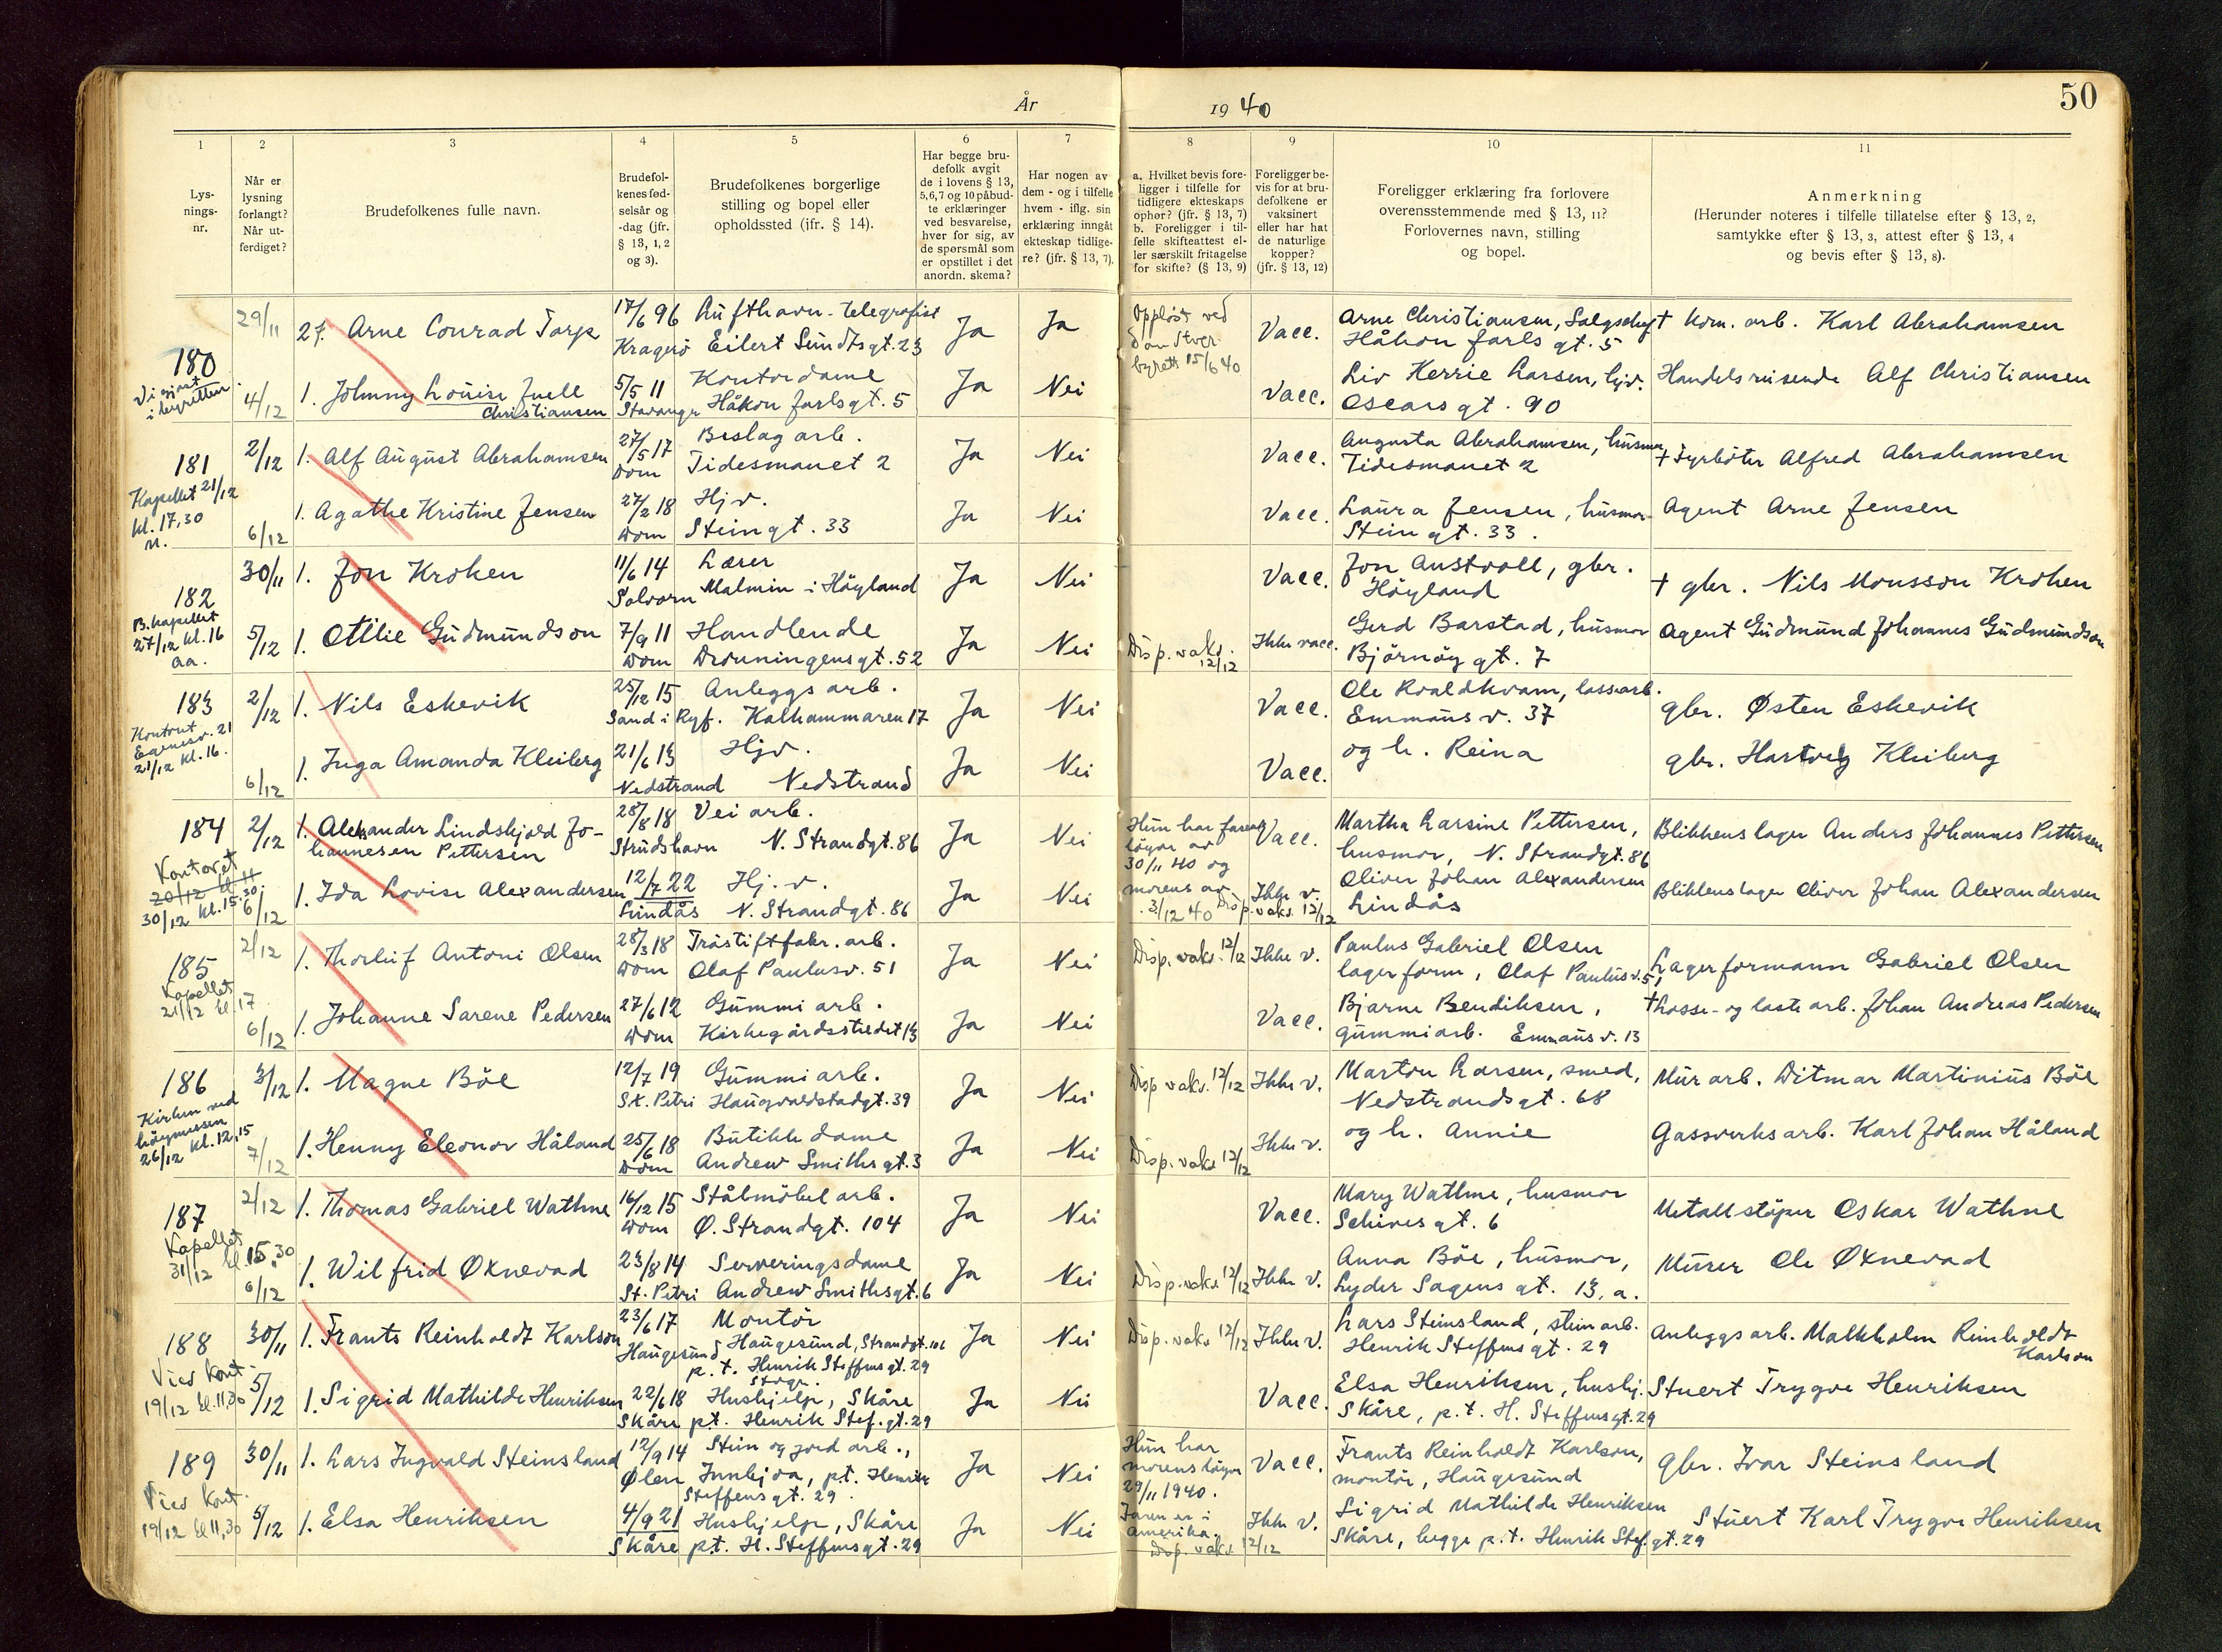 År 1940
50
1 2 3 4 5 6 7 8 9 10 11
Lys-
nings-
nr.
Når er
lysning
forlangt?
Når ut-
ferdiget?
Brudefolkenes fulle navn.
Brudefol-
kenes fød-
selsår og
-dag (jfr.
§ 13, 1, 2
og 3).
Brudefolkenes borgerlige
stilling og bopel eller
opholdssted (jfr. § 14).
Har begge bru-
defolk avgit
de i lovens § 13,
5,6,7 og 10 påbud-
te erklæringer
ved besvarelse,
hver for sig, av
de spørsmål som
er opstillet i det
anordn. skema?
Har nogen av
dem - og i tilfelle
hvem - iflg. sin
erklæring inngåt
ekteskap tidlige-
re? (jfr. § 13, 7).
a. Hvilket bevis fore-
ligger i tilfelle for
tidligere ekteskaps
ophør? (jfr. § 13, 7)
b. Foreligger i til-
felle skifteattest el-
ler særskilt fritagelse
for skifte? (§ 13, 9)
Foreligger be-
vis for at bru-
defolkene er
vaksinert
eller har hat
de naturlige
kopper?
(jfr. § 13, 12)
Foreligger erklæring fra forlovere
overensstemmende med § 13, 11?
Forlovernes navn, stilling
og bopel.
Anmerkning
(Herunder noteres i tilfelle tillatelse efter § 13, 2,
samtykke efter § 13, 3, attest efter § 13, 4
og bevis efter § 13, 8).
180
29/11 27. Arne Conrad Torp 17/6 96 Lufthavn-telegrafist
Kragerø Eilert Sundtsgt. 23 Ja Ja
Oppløst ved
byrett 15/6 40
Vacc. Arne Christiansen, Salgschef
Håkon Jarls gt. 5
† kom. arb. Karl Abrahamsen
4/12 1. Johnny Louise Juell
Christiansen 5/5 11 Kontordame
Stavanger Håkon Jarlsgt. 5 Ja Nei
Vacc. Liv Kerrie Larsen, hjv.
Oscarsgt. 90
Handelsreisende Alf Christiansen
181
Kapellet 21/12
kl. 17,30
M.
2/12 1. Alf August Abrahamsen 27/5 17 Beslagarb.
Dom Tidesmauet 2 Ja Nei
Vacc. Augusta Abrahamsen, husmor
Tidesmauet 2
† Fyrbøter Alfred Abrahamsen
6/12 1. Agathe Kristine Jensen 27/2 18 Hjv.
Dom Steingt. 33 Ja Nei
Vacc. Laura Jensen, husmor
Steingt. 33.
Agent Arne Jensen
182
B.kapellet
27/12 kl. 16
Aa.
30/11 1. Jon Kroken 11/6 14 Lærer
Solvorn Malmin i Høyland Ja Nei
Vacc. Jon Austvoll, gbr.
Høyland
† gbr. Nils Monsson Kroken
5/12 1. Ottilie Gudmundson 7/9 11 Handlende
Dom Dronningensgt. 52 Ja Nei
Disp. vaks. 12/12
Ikke vacc. Gerd Barstad, husmor
Bjørnøygt. 7
Agent Gudmund Johannes Gudmundson
183
Kontoret
Egenesv. 21
21/12 kl. 16.
2/12 1. Nils Eskevik 25/12 15 Anleggsarb.
Sand i Ryf. Kalhammaren 17 Ja Nei
Vacc. Ole Roaldkvam, lossearb.
Emmausv. 37
gbr. Østen Eskevik
6/12 1. Inga Amanda Kleiberg 21/6 13 Hjv.
Nedstrand Nedstrand Ja Nei
Vacc. og h. Reina
gbr. Hartvig Kleiberg
184
Kontoret
20/12 kl. 11
30/12 kl. 15,30
2/12 1. Aleksander Lindskjold Jo-
hannesen Pettersen 28/8 18 Veiarb.
Strudshavn N. Strandgt. 86 Ja Nei
Hun har farens
løyve av
30/11 40 og
morens av
3/12 40
Vacc. Martha Larsine Pettersen,
husmor, N. Strandgt. 86
Blikkenslager Anders Johannes Pettersen
6/12 1. Ida Lovise Alexandersen 12/7 22 Hj.v.
Lindås N. Strandgt. 86 Ja Nei
Ikke v.
Disp. vaks. 12/12
Oliver Johan Alexandersen
Lindås
Blikkenslager Oliver Johan Alexandersen
185
Kapellet
21/12 kl. 17
2/12 1. Thorleif Antoni Olsen 28/3 18 Tråstiftfabr. arb.
Dom Olaf Paulusv. 51 Ja Nei
Disp. vaks. 12/12 Ikke v. Paulus Gabriel Olsen
lagerform, Olaf Paulusv. 51
Lagerformann Gabriel Olsen
6/12 1. Johanne Sarene Pedersen 27/6 12 Gummiarb.
Dom Kirkegårdsstredet 13 Ja Nei
Vacc. Bjarne Bendiksen,
gummiarb. Emmausv. 13
† Losse- og lastearb. Johan Andreas Pedersen
186
Kirken ved
høymessen
26/12 kl. 12,15
3/12 1. Magne Böe 12/7 19 Gummiarb.
St. Petri Haugvaldstadgt. 39 Ja Nei
Disp. vaks. 12/12 Ikke v. Marton Larsen, smed,
Nedstrandsgt. 68
Murarb. Ditmar Martinius Böe
7/12 1. Henny Eleonor Håland 25/6 18 Butikkdame
Dom Andrew Smithsgt. 3 Ja Nei
Disp. vaks. 12/12 Ikke v. og h. Annie
Gassverksarb. Karl Johan Håland
187
Kapellet
31/12 kl. 15,30
2/12 1. Thomas Gabriel Wathne 16/12 15 Stålmöbelarb.
Dom Ø. Strandgt. 104 Ja Nei
Vacc. Mary Wathne, husmor
Schivesgt. 6
Metallstöper Oskar Wathne
6/12 1. Wilfrid Øxnevad 23/8 14 Serveringsdame
St. Petri Andrew Smithsgt. 6 Ja Nei
Disp. vaks. 12/12 Ikke v. Anna Böe, husmor,
Lyder Sagensgt. 13, a.
Murer Ole Øxnevad
188
Vies Kont.
19/12 kl. 11,30
30/11 1. Frants Reinholdt Karlson 23/6 17 Montör
Haugesund Haugesund, Strandgt. 106
p.t. Henrik Steffensgt. 29
Stvgr. Ja Nei
Disp. vaks. 12/12 Ikke v. Lars Steinsland, steinarb.
Henrik Steffensgt. 29
Anleggsarb. Malkholm Reinholdt
Karlson
5/12 1. Sigrid Mathilde Henriksen 22/6 18 Hushjelp, Skåre
Skåre p.t. Henrik Stef.gt. 29 Ja Nei
Vacc. Elsa Henriksen, hushj.
Skåre, p.t. H. Steffensgt. 29
Stuert Trygve Henriksen
189
Vies Kont.
19/12 kl 11,30
30/11 1. Lars Ingvald Steinsland 12/9 14 Stein og jord arb.,
Ølen Innbjoa, p.t. Henrik
Steffensgt. 29. Ja Nei
Hun har
morens løyve
29/11 1940.
Faren er i
Amerika.
Vacc. Frants Reinholdt Karlson,
montör, Haugesund
gbr. Ivar Steinsland
5/12 1. Elsa Henriksen 4/9 21 Hushjelp, Skåre
Skåre p.t. H. Steffensgt. 29 Ja Nei
Disp. vaks. 12/12
Ikke v. Sigrid Mathilde Henriksen
Skåre, begge p.t. Henrik Stef.gt. 29
Stuert Karl Trygve Henriksen